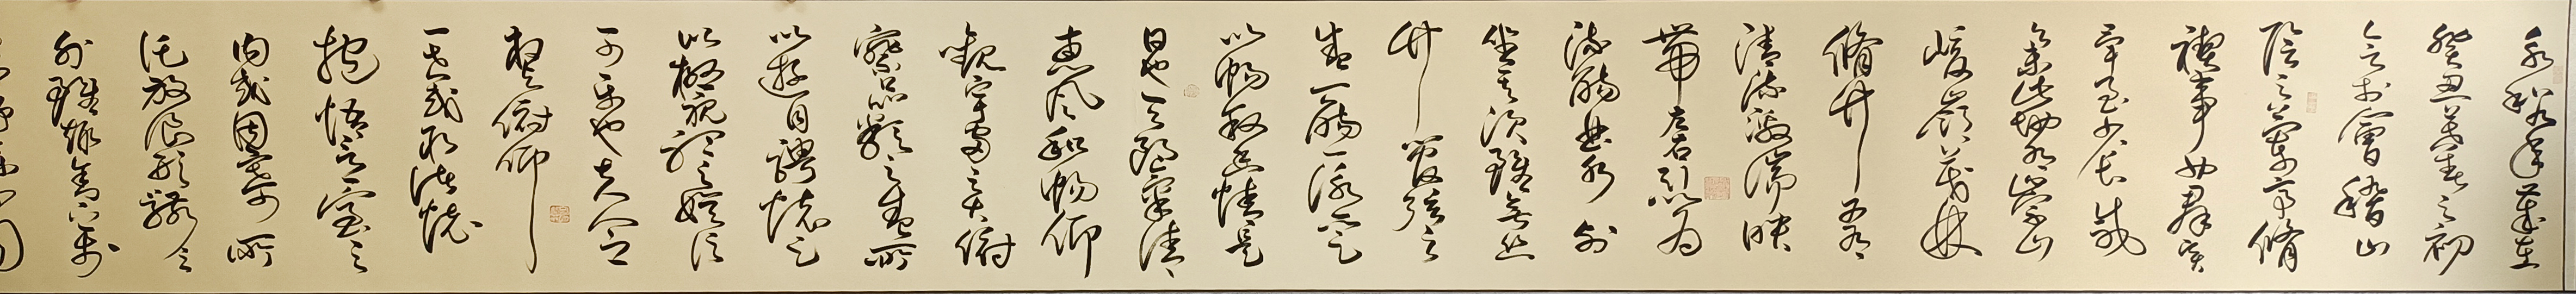 永和九年歲在
癸丑暮春之初
會于會稽山
陰之蘭亭脩
禊事也群賢
畢至少長咸
集此地有崇山
峻嶺茂林
脩竹又有
清流激湍映
帶左右引以為
流觴曲水列
坐其次雖無絲
竹管弦之
盛一觴一詠亦足
以暢敘幽情是
日也天朗氣清
惠風和暢仰
觀宇宙之大俯
察品類之盛所
以遊目騁懷足
以極視聽之娛信
可樂也夫人之
相與俯仰
一世或取諸懷
抱悟言一室之
內或因寄所
託放浪形骸之
外雖趣舍萬